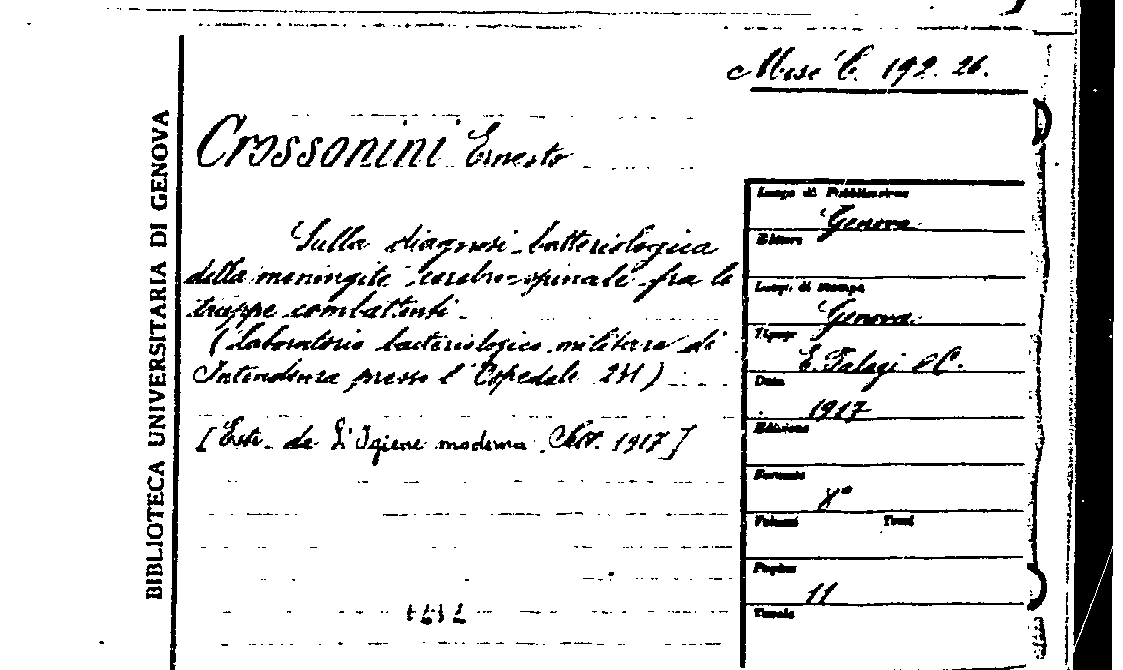 Misc. C. 192. 26.
BIBLIOTECA UNIVERSITARIA DI GENOVA
Crossonini Ernesto
Sulla diagnosi batteriologica
della meningite cerebro-spinale fra le
truppe combattenti.
(Laboratorio bacteriologico militare di
Intendenza presso l'Ospedale 2H)
[Estr. da L'Igiene moderna 1917]
Luogo di Pubblicazione
Genova
Editore
Luogo di stampa
Genova
Tipogr.
E. Palagi & C.
Data
1917
Edizione
Formato
8°
Volumi Tomi
Pagine
11
Tavole